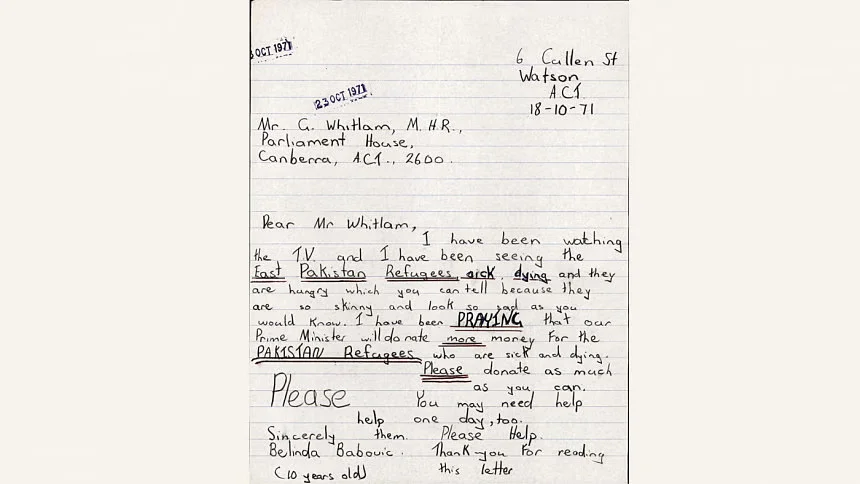 OCT 1971
23 OCT 1971
6 Cullen St
Watson
A.C.T.
18-10-71
Mr. G. Whitlam, M.H.R.,
Parliament House,
Canberra, A.C.T., 2600.
Dear Mr Whitlam,
I have been watching
the T.V. and I have been seeing the
East Pakistan Refugees sick dying and they
are hungry which you can tell because they
are so skinny and look so sad as you
would know. I have been PRAYING that our
Prime Minister will donate more money for the
PAKISTAN Refugees who are sick and dying.
Please donate as much
as you can.
Please You may need help
help one day, too.
Sincerely them. Please Help.
Belinda Babovic. Thank-you for reading
(10 years old) this letter